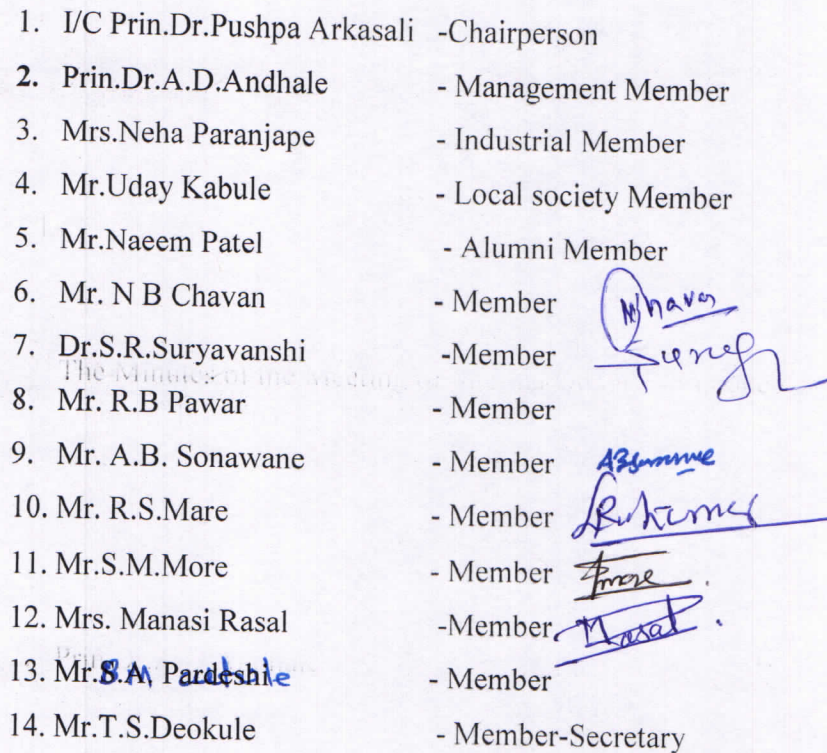 1. I/C Prin.Dr.Pushpa Arkasali -Chairperson
2. Prin.Dr.A.D.Andhale - Management Member
3. Mrs.Neha Paranjape - Industrial Member
4. Mr.Uday Kabule - Local society Member
5. Mr.Naeem Patel - Alumni Member
6. Mr. N B Chavan - Member
7. Dr.S.R.Suryavanshi -Member
The Minutes of the Meeting
8. Mr. R.B Pawar - Member
9. Mr. A.B. Sonawane - Member
10. Mr. R.S.Mare - Member
11. Mr.S.M.More - Member
12. Mrs. Manasi Rasal -Member Rasal
13. Mr. Pardeshi - Member
14. Mr.T.S.Deokule - Member-Secretary